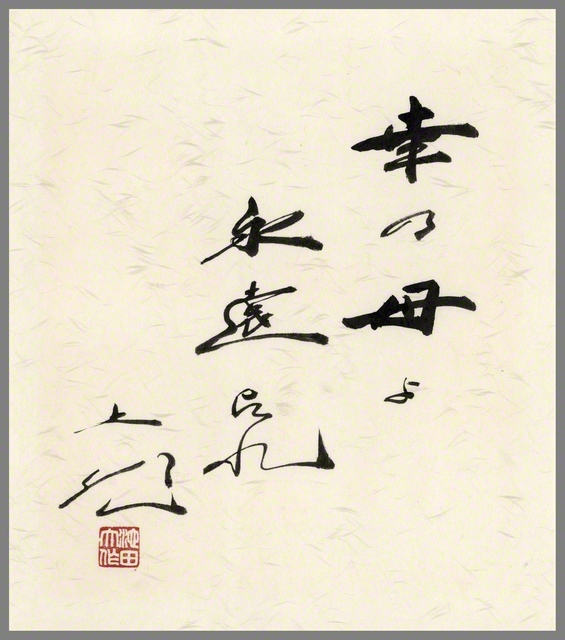 幸の母よ
永遠
大作
池田
大作